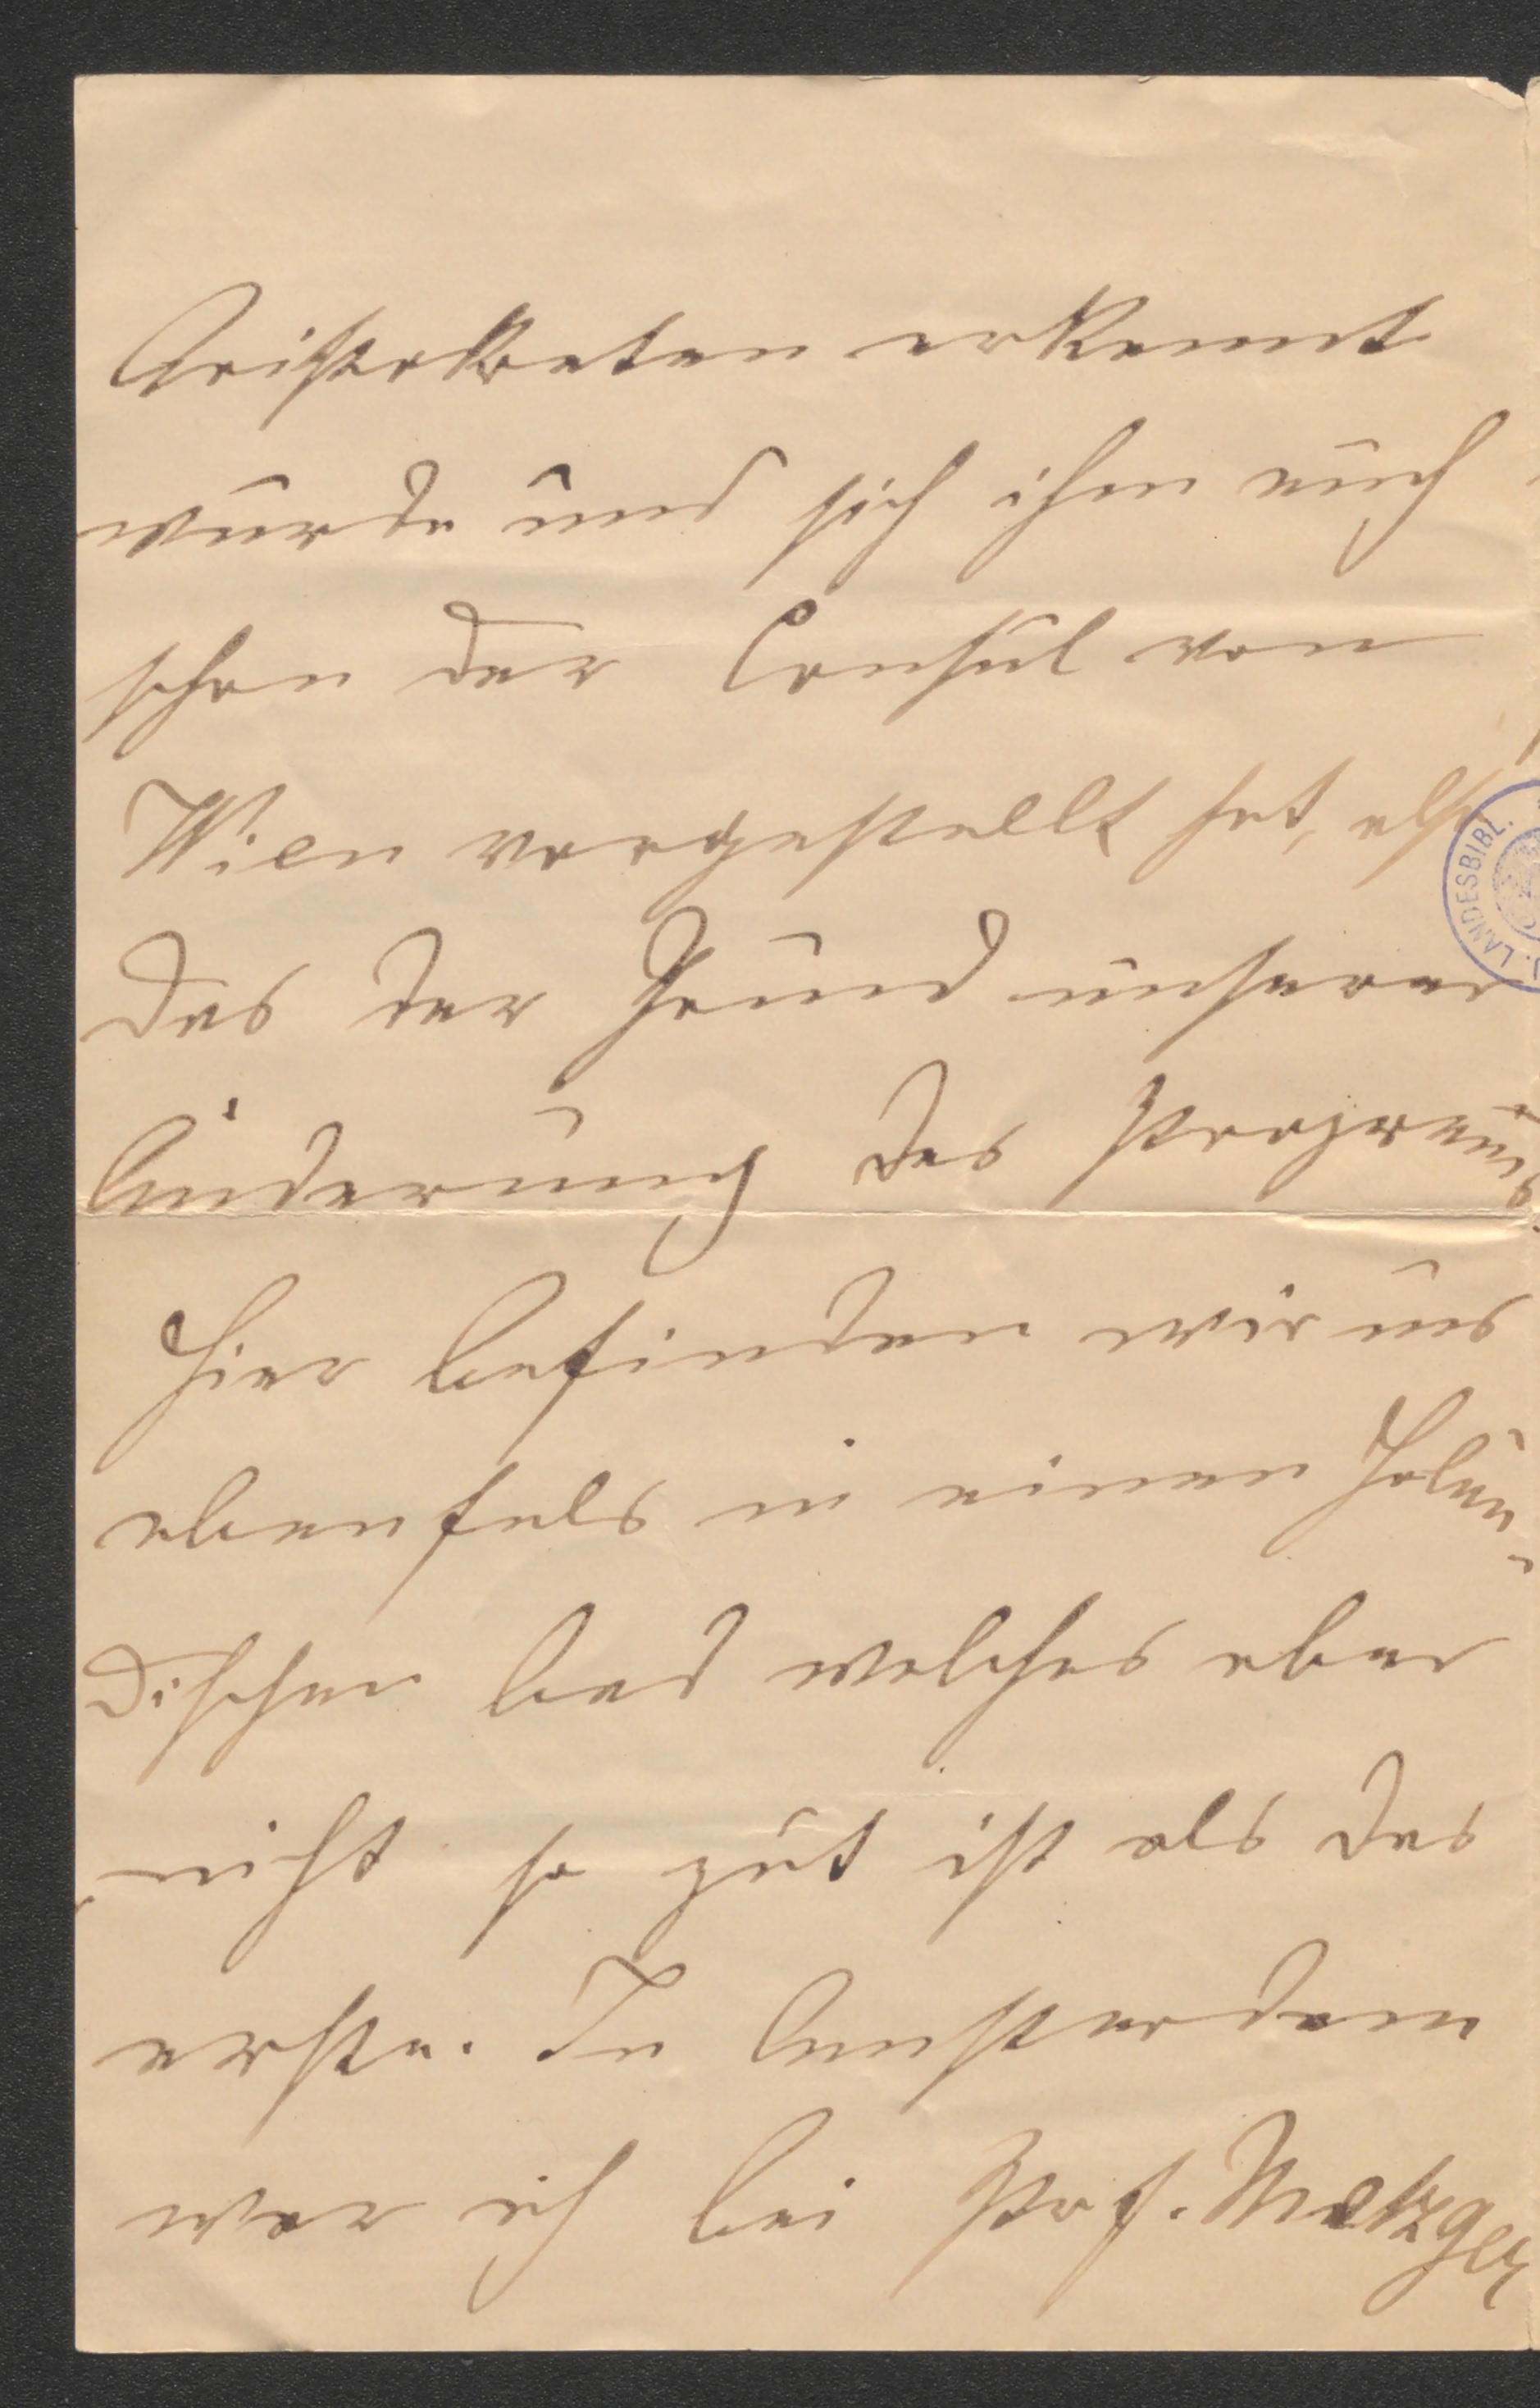 Aristokraten erkannt
wurde und sich ihm auch
schon der Consul von
Wien vorgestellt hat, also
das der Grund unserer
Änderung des Programms.
Hier befinden wir uns
ebenfals in einen Holän-
dischen bad welches aber
nicht so gut ist als das
erste. In Amsterdam
war ich bei Prof. Metzger
LANDESBIBL.